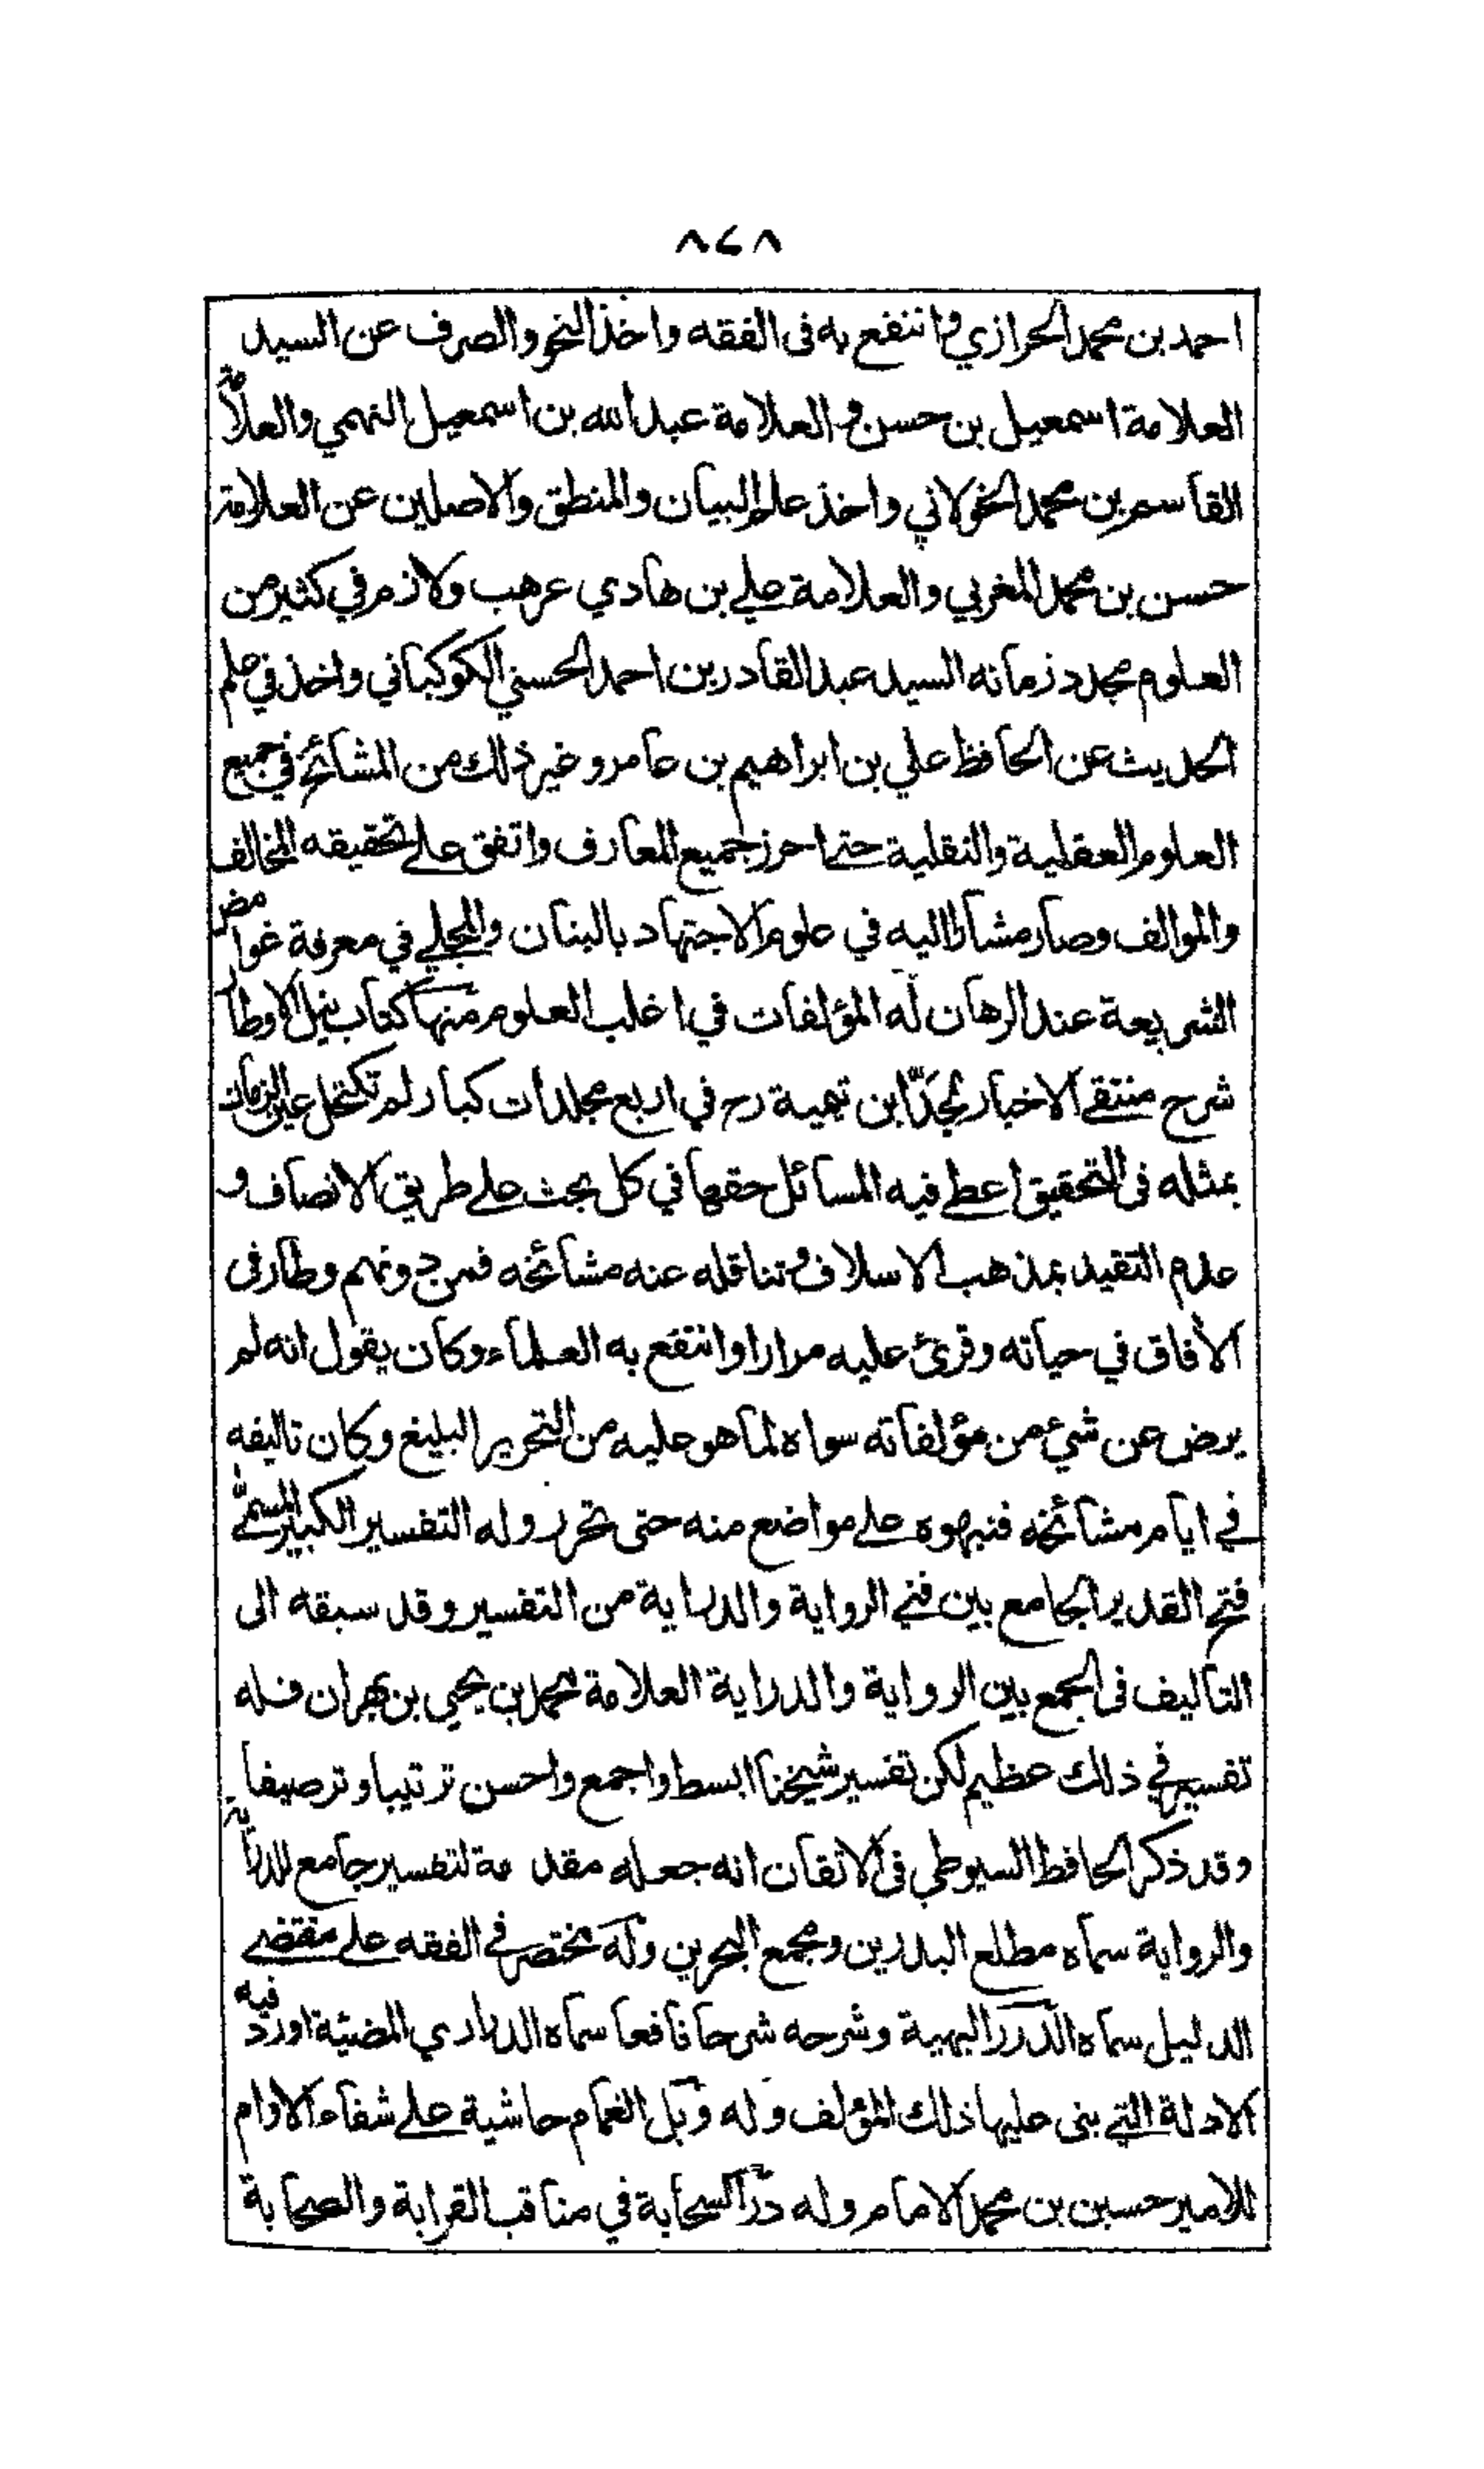 ٨٧٨
احمد بن محمد الحرازي وانتفع به فى الفقه واخذ النحو والصرف عن السيد
العلامة اسمعيل بن حسن و العلامة عبد الله بن اسمعيل النهمي والعلامة
القاسم بن محمد الخولاني واخذ علم البيان والمنطق والاصلين عن العلامة
حسن بن محمد المغربي والعلامة علي بن هادي عرهب ولازم في كثير من
العلوم مجدد زمانه السيد عبد القادر بن احمد الحسني الكوكباني واخذ في علم
الحديث عن الحافظ علي بن ابراهيم بن عامر وغير ذلك من المشائخ في جميع
العلوم العقلية والنقلية حتى احرز جميع المعارف واتفق على تحقيقه المخالف
والموالف وصار مشارا اليه في علوم الاجتهاد بالبنان والمجلي في معرفة غوامض
الشريعة عند الرهان له المؤلفات في اغلب العلوم منها كتاب نيل الاوطار
شرح منتقى الاخبار لجد ابن تيمية رح في اربع مجلدات كبار لم تكتحل عين الزمان
بمثله فى التحقيق اعطى فيه المسائل حقها في كل بحث على طريق الانصاف و
عدم التقيد بمذهب الاسلاف وتناقله عنه مشائخه فمن دونهم وطار فى
الآفاق في حياته وقرئ عليه مرارا وانتفع به العلماء وكان يقول انه لم
يرض عن شيء من مؤلفاته سواه لما هو عليه من التحرير البليغ وكان تاليفه
في ايام مشائخه فنبهوه على مواضع منه حتى تحرر وله التفسير الكبير المسمى
فتح القدير الجامع بين فني الرواية والدراية من التفسير وقد سبقه الى
التاليف فى الجمع بين الرواية والدراية العلامة محمد بن يحيى بن بهران فله
تفسير في ذلك عظيم لكن تفسير شيخنا ابسط واجمع واحسن ترتيبا وترصيفا
وقد ذكر الحافظ السيوطي فى الاتقان انه جعله مقدمة لتفسير جامع للدراية
والرواية سماه مطلع البدرين ومجمع البحرين وله مختصر في الفقه على مقتضى
الدليل سماه الدرر البهية وشرحه شرحا نافعا سماه الدراري المضيئة اورد فيه
الادلة التي بنى عليها ذلك المؤلف وله وبل الغمام حاشية على شفاء الاوام
للامير حسين بن محمد الامام وله در السحابة في مناقب القرابة والصحابة